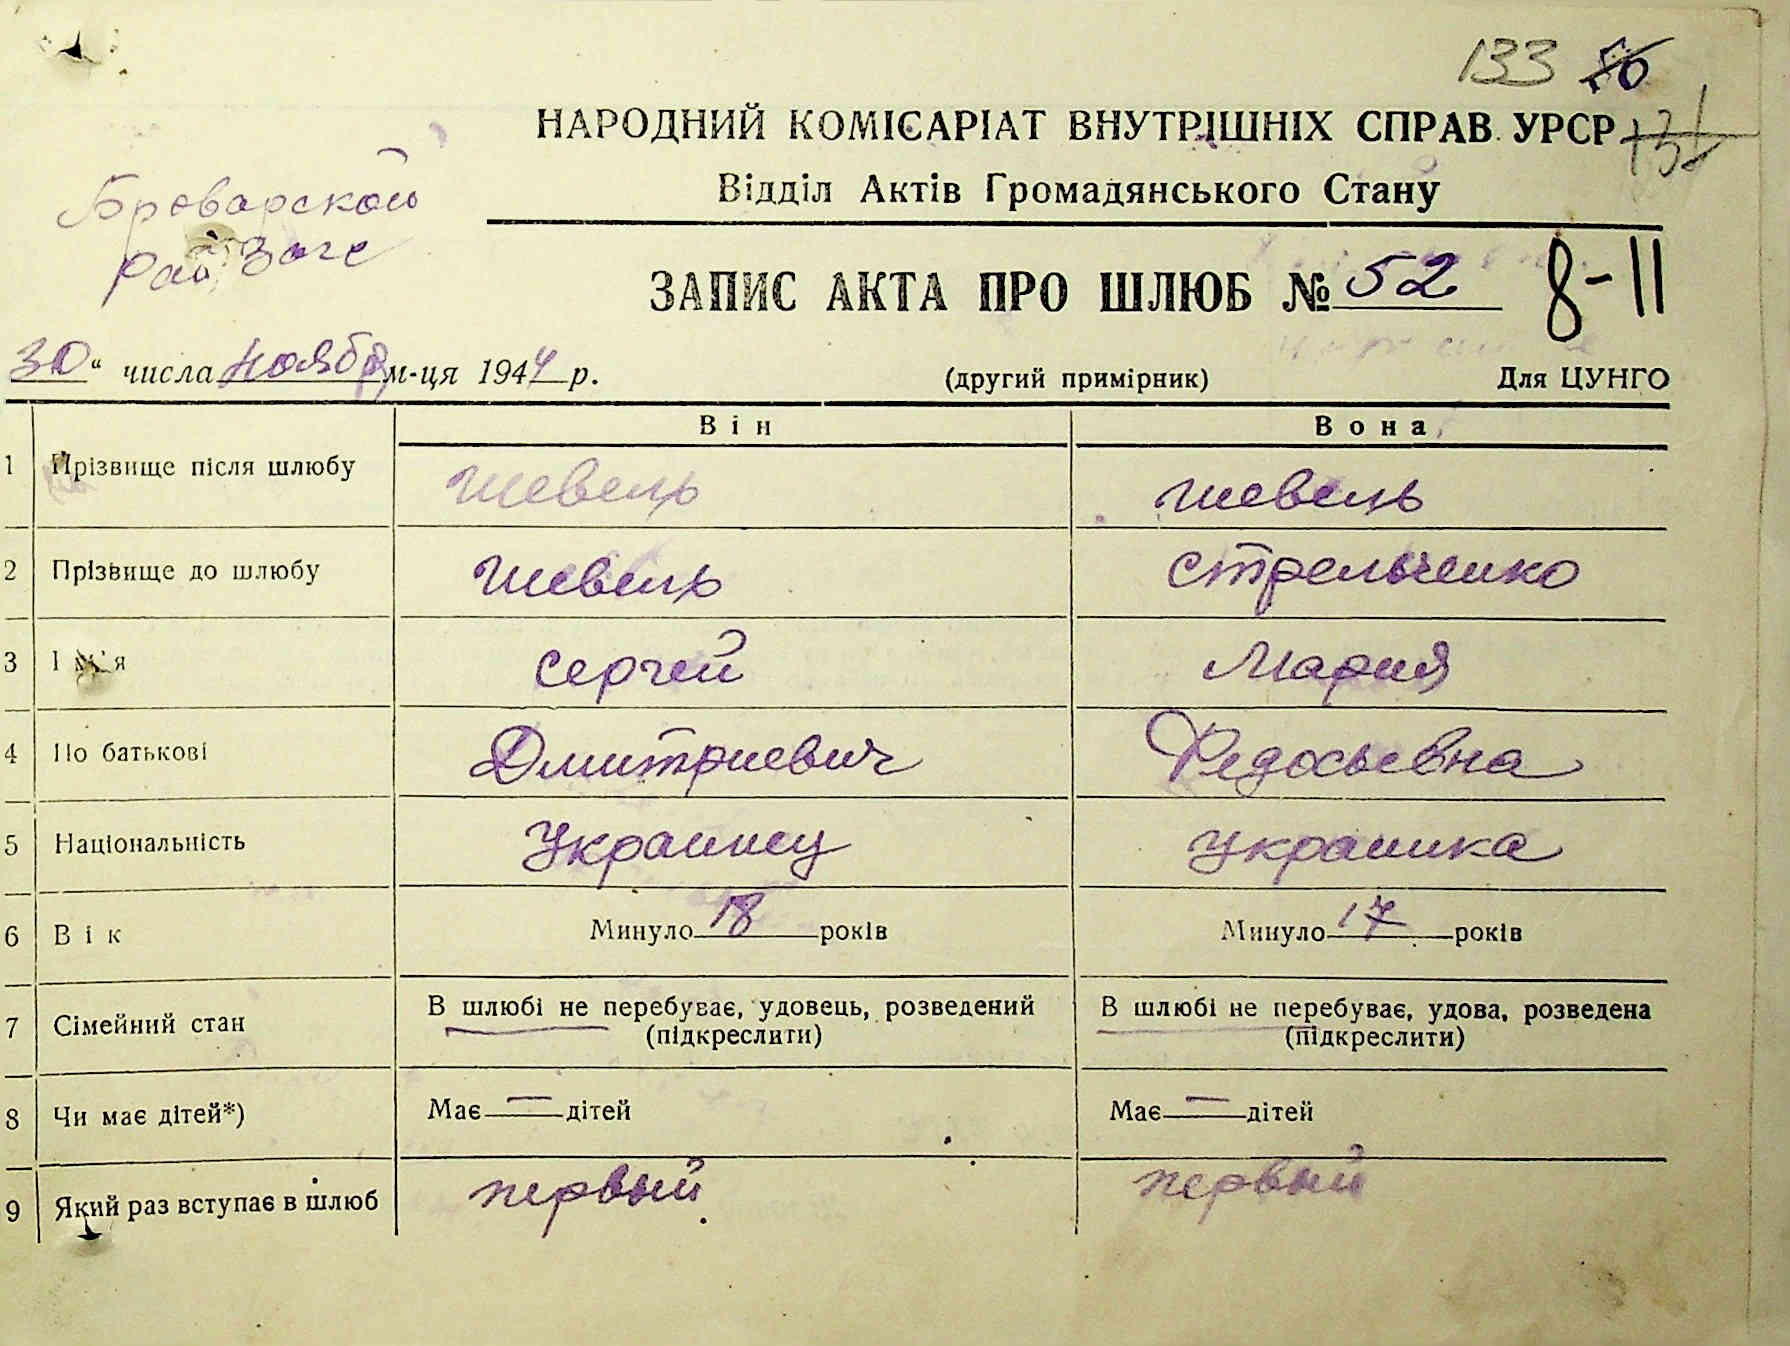 133 50
131
НАРОДНИЙ КОМІСАРІАТ ВНУТРІШНІХ СПРАВ УРСР
Відділ Актів Громадянського Стану
Броварской
Рай Загс
ЗАПИС АКТА ПРО ШЛЮБ № 52
8-11
30" числа ноября м-ця 1944 р.
(другий примірник)
Для ЦУНГО
Він Вона
1 Прізвище після шлюбу Шевель Шевель
2 Прізвище до шлюбу Шевель Стрельченко
3 Ім'я Сергей Мария
4 По батькові Дмитриевич Федосьевна
5 Національність Украинец Украинка
6 Вік Минуло 18 років Минуло 17 років
7 Сімейний стан В шлюбі не перебуває, удовець, розведений (підкреслити) В шлюбі не перебуває, удова, розведена (підкреслити)
8 Чи має дітей*) Має — дітей Має — дітей
9 Який раз вступає в шлюб первый первый